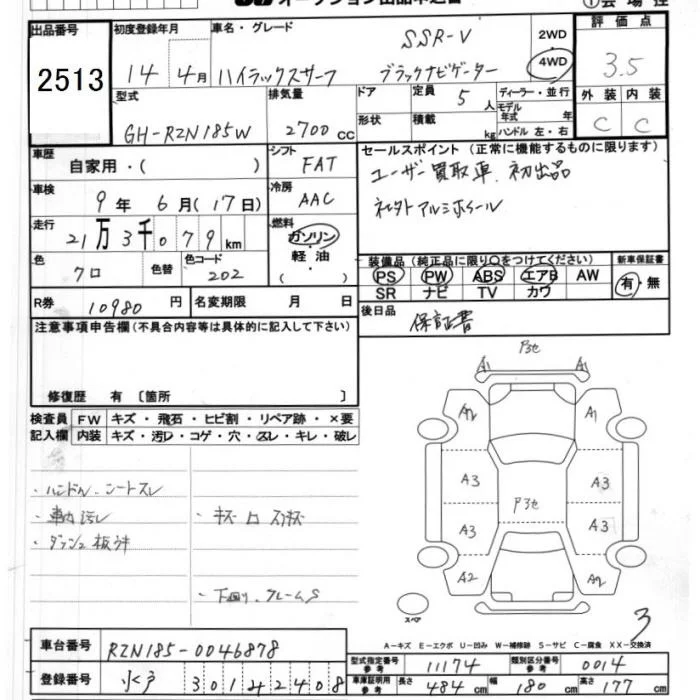 オークション出品申込書
①会場控
出品番号 初度登録年月 車名・グレード SSR-V 2WD 評価点
2513 14年 4月 ハイラックスサーフ ブラックナビゲーター 4WD 3.5
型式 排気量 ドア 定員 5人 ディーラー・並行 外装 内装
GH-RZN185W 2700cc 形状 積載 kg モデル年式 年 ハンドル 左・右 C C
車歴 自家用・( ) シフト FAT セールスポイント (正常に機能するものに限ります)
車検 9年 6月(17日) 冷房 AAC ユーザー買取車 初出品
走行 21万3千079km 燃料 ガソリン 社外アルミホイール
軽油 装備品(純正品に限り○をつけてください) 新車保証書
色 クロ 色替 色コード 202 ( ) PS PW ABS エアB AW 有・無
SR ナビ TV カワ
R券 10980円 名変期限 月 日 後日品 保証書
注意事項申告欄(不具合内容等は具体的に記入して下さい)
修復歴 有 〔箇所 〕
検査員 FW キズ・飛石・ヒビ割・リペア跡・×要
記入欄 内装 キズ・汚レ・コゲ・穴・スレ・キレ・破レ
・ハンドル、シートスレ
・車内汚レ
・ダッシュ板
・下廻り、フレームS
A1 A1
A2 A1
A3 A3
A3 A3
A2 A2
スペア
3
A-キズ E-エクボ U-凹み W-補修跡 S-サビ C-腐食 XX-交換済
車台番号 RZN185-0046878 型式指定番号 参考 11174 類別区分番号 参考 0014
登録番号 3 0 1 4 2 4 0 8 車庫証明用 参考 長さ 484cm 幅 180cm 高さ 177cm